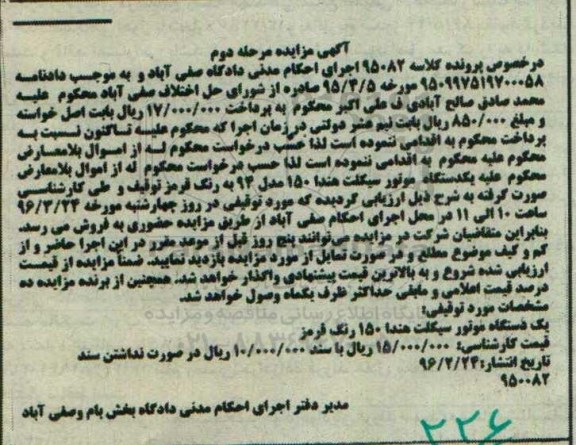 آگهی مزایده مرحله دوم
درخصوص پرونده کلاسه ۹۵۰۸۲ اجرای احکام مدنی دادگاه صفی آباد و به موجب دادنامه
۹۵۰۹۹۷۵۱۹۷۰۰۰۵۸ مورخه ۹۵/۳/۵ صادره از شورای حل اختلاف صفی آباد محکوم علیه
محمد صادق صالح آبادی ف علی اکبر محکوم به پرداخت ۱۷/۰۰۰/۰۰۰ ریال بابت اصل خواسته
و مبلغ ۸۵۰/۰۰۰ ریال بابت نیم عشر دولتی در زمان اجرا که محکوم علیه تاکنون نسبت به
پرداخت محکوم به اقدامی ننموده است لذا حسب درخواست محکوم له از اموال بلامعارض
محکوم علیه محکوم به اقدامی ننموده است لذا حسب درخواست محکوم له از اموال بلامعارض
محکوم علیه یکدستگاه موتور سیکلت هندا ۱۵۰ مدل ۹۴ به رنگ قرمز توقیف و طی کارشناسی
صورت گرفته به شرح ذیل ارزیابی گردیده که مورد توقیفی در روز چهارشنبه مورخه ۹۶/۳/۲۴
ساعت ۱۰ الی ۱۱ در محل اجرای احکام صفی آباد از طریق مزایده حضوری به فروش می رسد.
بنابراین متقاضیان شرکت در مزایده می‌توانند پنج روز قبل از موعد مقرر در این اجرا حاضر و از
کم و کیف موضوع مطلع و در صورت تمایل از مورد مزایده بازدید نمایند. ضمناً مزایده از قیمت
ارزیابی شده شروع و به بالاترین قیمت پیشنهادی واگذار خواهد شد. همچنین از برنده مزایده ده
درصد قیمت اعلامی و مابقی حداکثر ظرف یکماه وصول خواهد شد.
مشخصات مورد توقیفی:
یک دستگاه موتور سیکلت هندا ۱۵۰ رنگ قرمز
قیمت کارشناسی: ۱۵/۰۰۰/۰۰۰ ریال با سند ۱۰/۰۰۰/۰۰۰ ریال در صورت نداشتن سند
تاریخ انتشار: ۹۶/۲/۲۴
۹۵۰۰۸۲
مدیر دفتر اجرای احکام مدنی دادگاه بخش بام وصفی آباد
۲۲۶